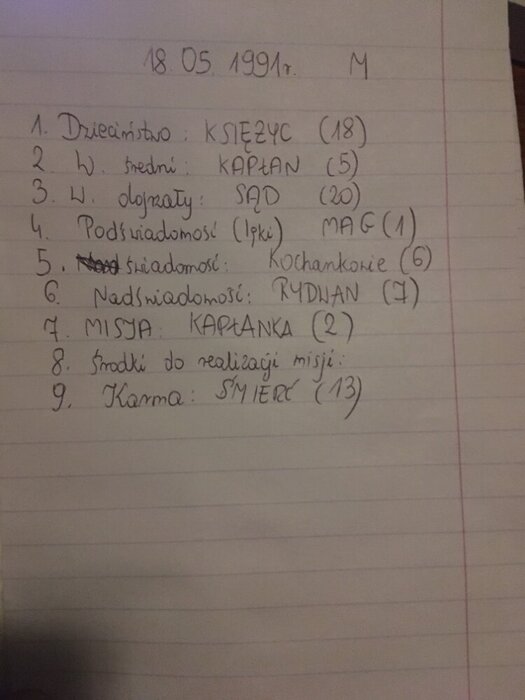 18.05.1991r. M
1. Dzieciństwo: KSIĘŻYC (18)
2. W. średni: KAPŁAN (5)
3. W. dojrzały: SĄD (20)
4. Podświadomość (lęki) MAG (1)
5. świadomość: Kochankowie (6)
6. Nadświadomość: RYDWAN (7)
7. MISJA: KAPŁANKA (2)
8. Środki do realizacji misji:
9. Karma: ŚMIERĆ (13)